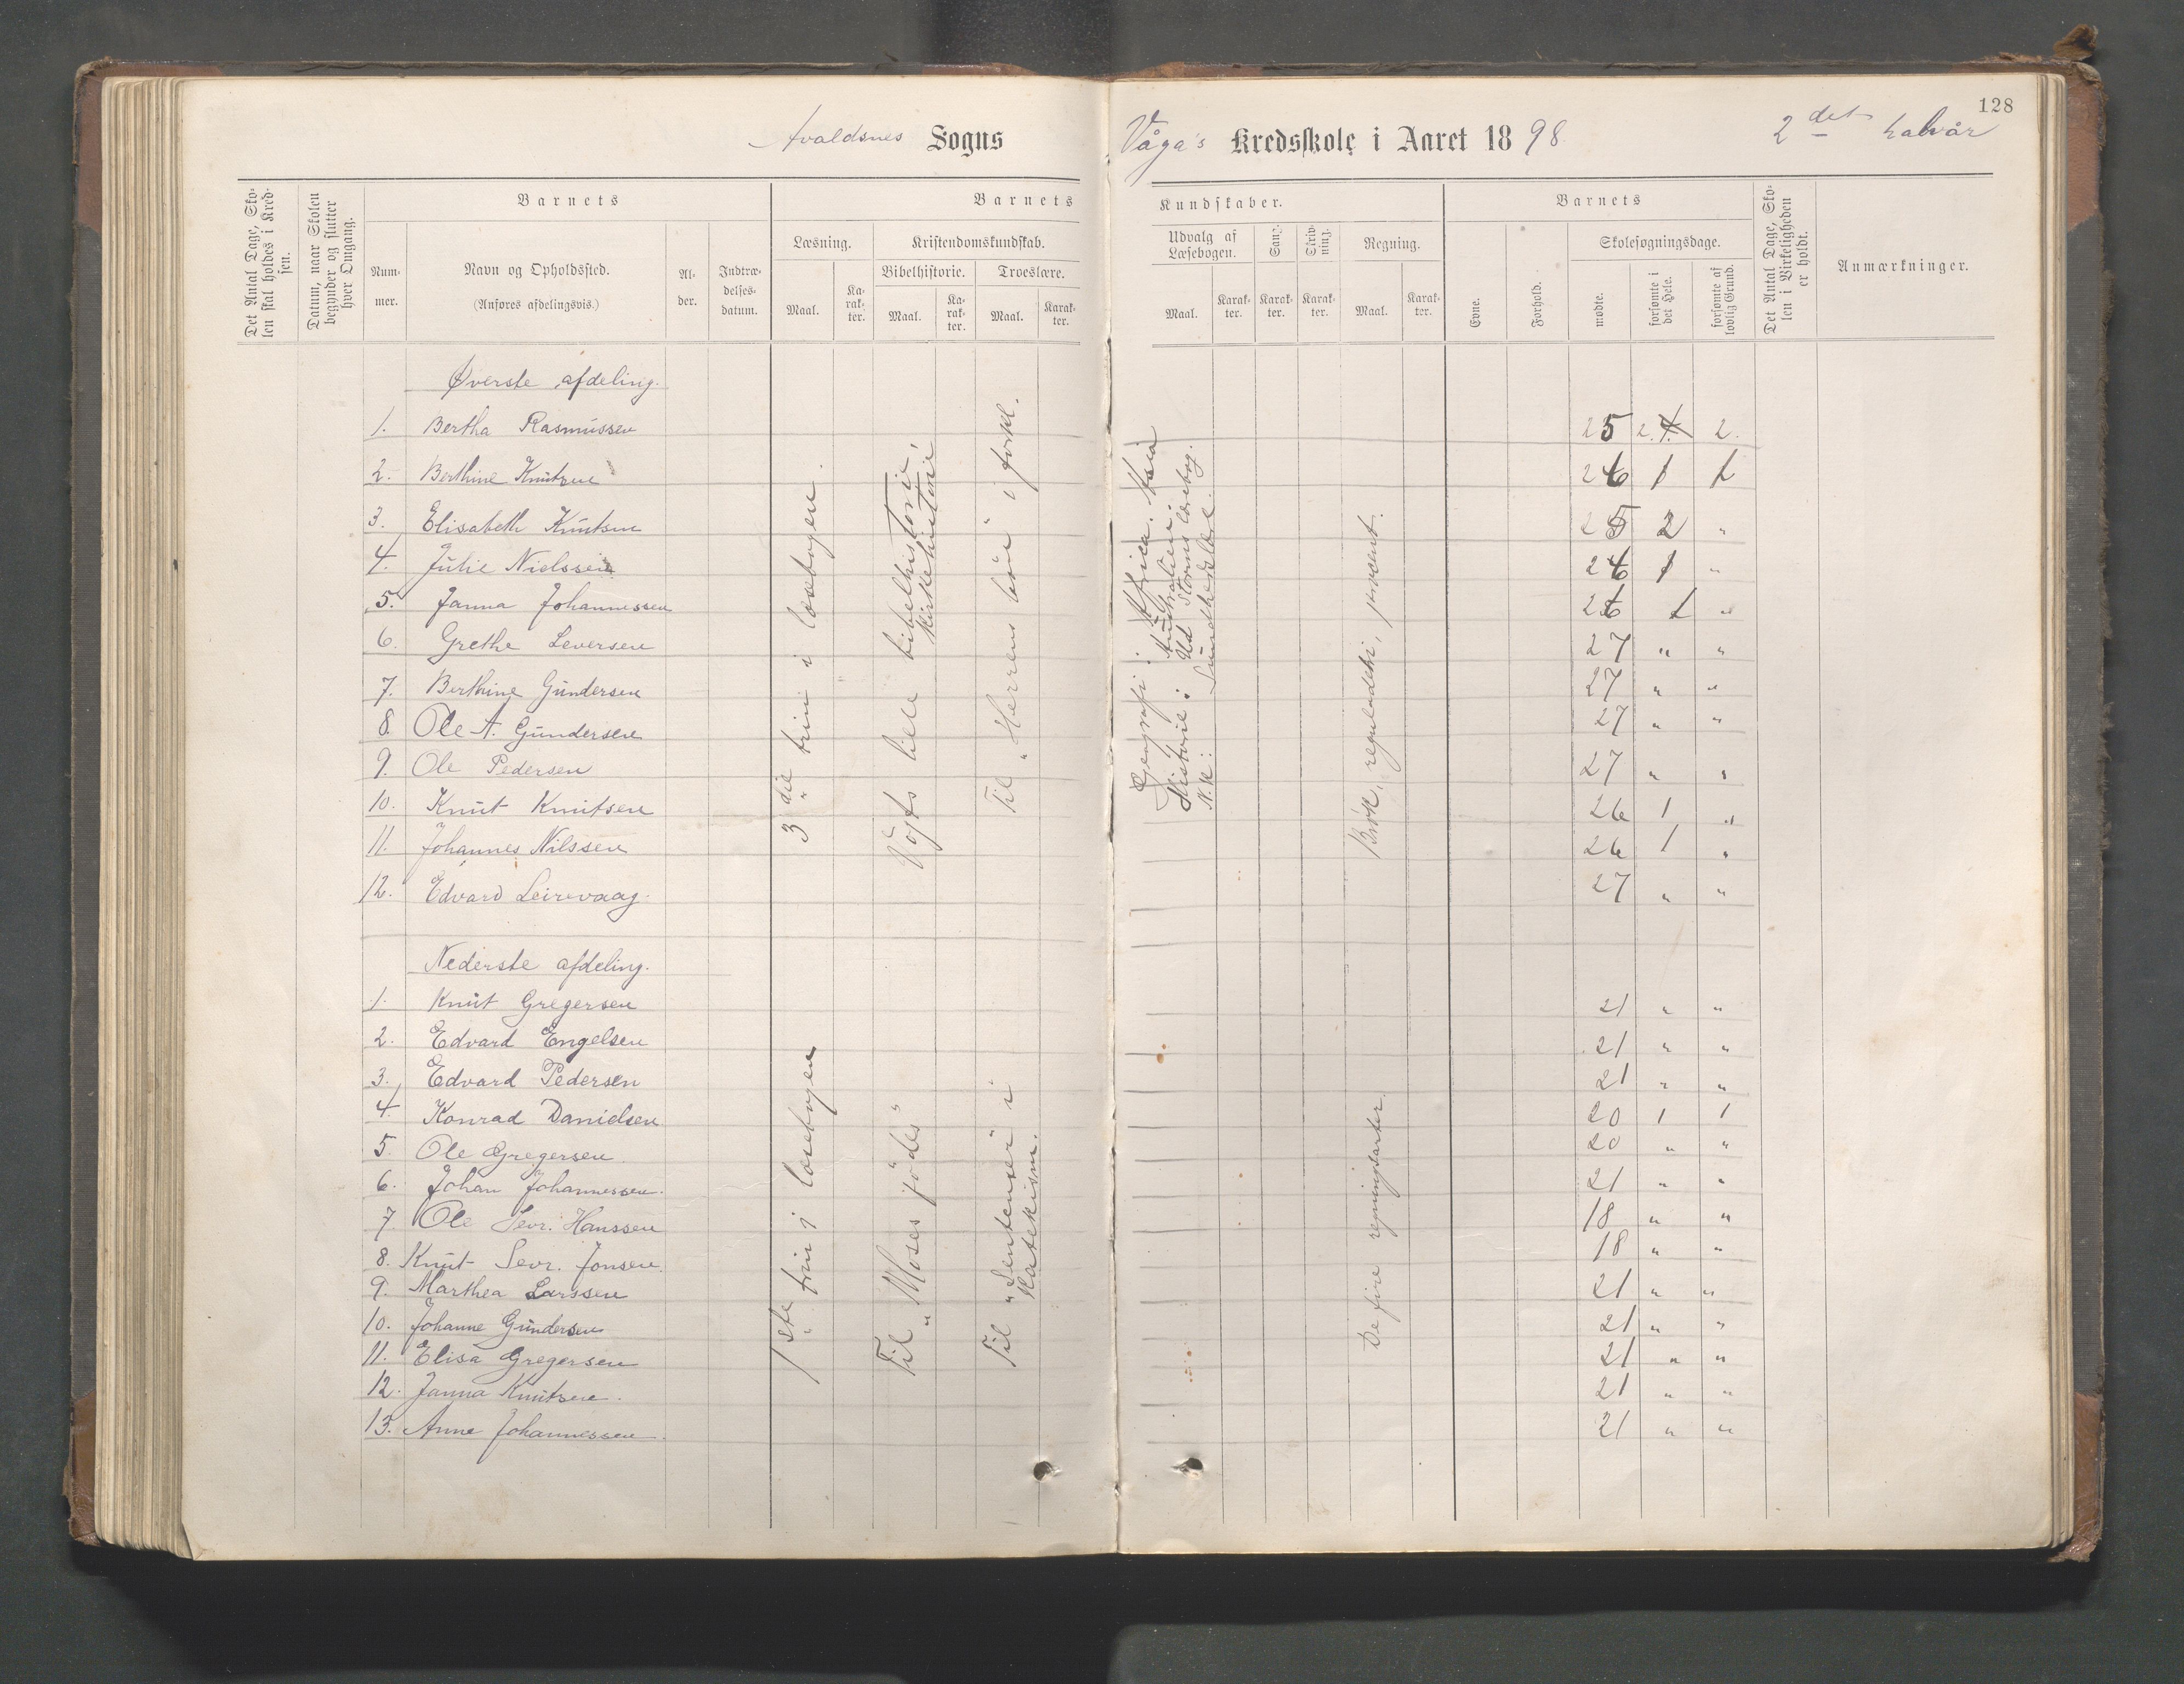 128
Avaldsnes Sogns Våga's Kredsskole i Aaret 1898 2det halvår
Det Antal Dage, Skolen skal holdes i Kredsen.
Datum, naar Skolen begynder og slutter hver Omgang.
Barnets
Nummer.
Navn og Opholdssted.
(Anføres afdelingsvis.)
Alder.
Indtrædelsesdatum.
Barnets Kundskaber.
Læsning.
Maal.
Karakter.
Kristendomskundskab.
Bibelhistorie.
Maal.
Karakter.
Troeslære.
Maal.
Karakter.
Udvalg af Læsebogen.
Maal.
Karakter.
Sang.
Karakter.
Skrivning.
Karakter.
Regning.
Maal.
Karakter.
Barnets
Evne.
Forhold.
Skolesøgningsdage.
mødte.
forsømte i det Hele.
forsømte af lovlig Grund.
Det Antal Dage, Skolen i Virkeligheden er holdt.
Anmærkninger.
Øverste afdeling.
1. Bertha Rasmussen 25 2. 2.
2. Berthine Knutsen 26 1 1
3. Elisabeth Knutsen 25 2 "
4. Julie Nielssen 26 1 "
5. Janna Johannessen 26 1 "
6. Grethe Seversen 27 " "
7. Berthine Gundersen 27 " "
8. Ole A. Gundersen 27 " "
9. Ole Pedersen 27 " "
10. Knut Knutsen 26 1 "
11. Johannes Nilssen 26 1 "
12. Edvard Leirevaag. 27 " "
3die trin i læsebogen.
Vogts lille bibelhistorie,
kirkehistorie,
Til "Herrens bön" i forkl.
Geografi: Africa. Asia
Australien.
Historie: Ud Storms læsebog.
N. k.: Sundhedslæl.
Brök, reguladetri, procent.
Nederste afdeling.
1. Knut Gregersen 21 " "
2. Edvard Engelsen 21 " "
3. Edvard Pedersen 21 " "
4. Konrad Danielsen 20 1 1
5. Ole Gregersen. 20 " "
6. Johan Johannessen. 21 " "
7. Ole Sevr. Hanssen 18 " "
8. Knut Sevr. Jonsen. 18 " "
9. Marthea Larssen 21 " "
10. Johanne Gundersen 21 " "
11. Elisa Gregersen 21 " "
12. Janna Knutsen. 21 " "
13. Anne Johannessen. 21 " "
1ste trin i læsebogen
Til "Moses födes"
Til "Sentenser" i
Katekism.
De fire regningsarter.